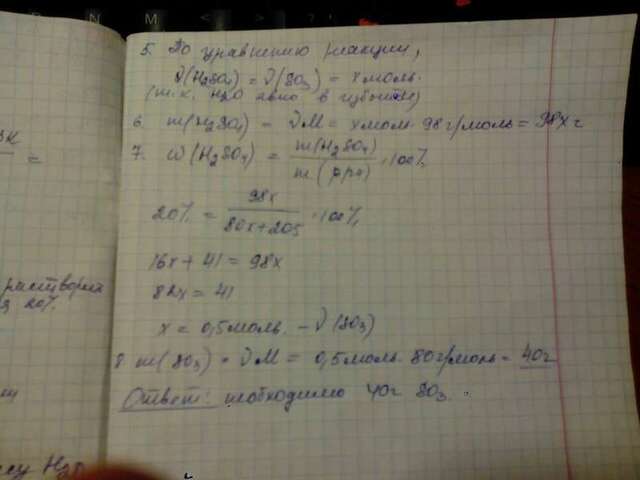 5. По уравнению реакции,
ν(H₂SO₄) = ν(SO₃) = x моль.
(т.к. H₂O явно в избытке)
6. m(H₂SO₄) = νM = x моль · 98 г/моль = 98x г
7. ω(H₂SO₄) = m(H₂SO₄) / m(р-ра) · 100%
20% = 98x / 80x+205 · 100%
16x + 41 = 98x
82x = 41
x = 0,5 моль. – ν(SO₃)
8 m(SO₃) = νM = 0,5 моль · 80 г/моль = 40г
Ответ: необходимо 40г SO₃.
=
20%.